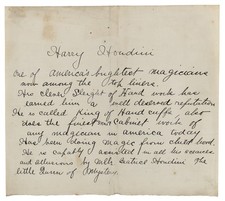 Harry Houdini
one of America's brightest magicians
now among the top liners.
His clever Sleight of Hand work has
earned him a well deserved reputation
He is called King of Handcuffs also
does the finest Cabinet work of
any magician in america today
Has been doing magic from child hood.
He is capably assisted in all his
and by Mlle Beatrice Houdini The
little Queen of Mystery